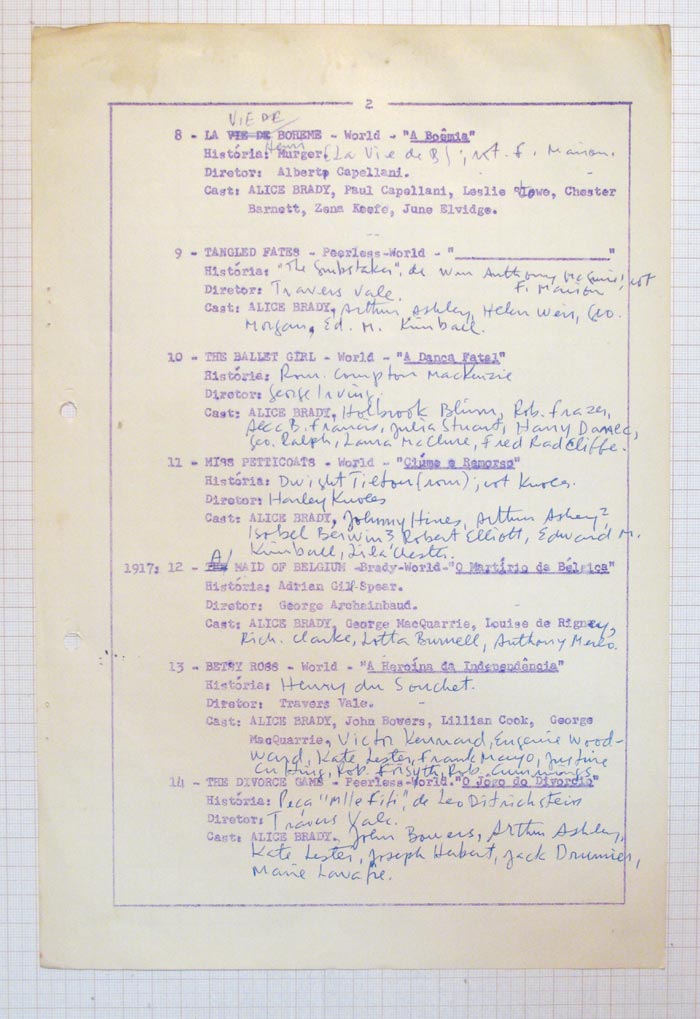 2
VIE DE
8 - LA VIE DE BOHEME - World - "A Boêmia"
Henri
História: Murger (La Vie de B); rot. F. Marion.
Diretor: Alberto Capellani.
Cast: ALICE BRADY, Paul Capellani, Leslie Stowe, Chester
Barnett, Zena Keefe, June Elvidge.
9 - TANGLED FATES - Peerless-World - "____________"
História: "The Grubstaker", de Wm Anthony McGuire; rot
Diretor: Travers Vale. F. Marion
Cast: ALICE BRADY, Arthur Ashley, Helen Weir, Geo.
Morgan, Ed. M. Kimball.
10 - THE BALLET GIRL - World - "A Dança Fatal"
História: Rom. Compton MacKenzie
Diretor: George Irving.
Cast: ALICE BRADY, Holbrook Blinn, Rob. Frazer,
Alec B. Francis, Julia Stuart, Harry Danes,
Geo. Ralph, Laura McClure, Fred Radcliffe.
11 - MISS PETTICOATS - World - "Ciúme e Remorso"
História: Dwight Tilton (rom); rot Knoles.
Diretor: Harley Knoles
Cast: ALICE BRADY, Johnny Hines, Arthur Ashley?
Isobel Berwin? Robert Elliott, Edward M.
Kimball, Lila Chester.
A/
1917: 12 - THE MAID OF BELGIUM -Brady-World-"O Martírio da Bélgica"
História: Adrian Gil-Spear.
Diretor: George Archainbaud.
Cast: ALICE BRADY, George MacQuarrie, Louise de Rigney,
Rich. Clarke, Lotta Burnell, Anthony Merlo.
13 - BETSY ROSS - World - "A Heroína da Independência"
História: Henry du Souchet.
Diretor: Travers Vale.
Cast: ALICE BRADY, John Bowers, Lillian Cook, George
MacQuarrie, Victor Kennard, Eugenie Wood-
ward, Kate Lester, Frank Mayo, Justine
Cutting, Rob. Forsyth, Rob. Cummings
14 - THE DIVORCE GAME - Peerless-World-"O Jôgo do Divorcio"
História: Peça "Mlle Fifi", de Leo Ditrichstein
Diretor: Travers Vale.
Cast: ALICE BRADY, John Bowers, Arthur Ashley,
Kate Lester, Joseph Herbert, Jack Drumier,
Marie Lavarre.